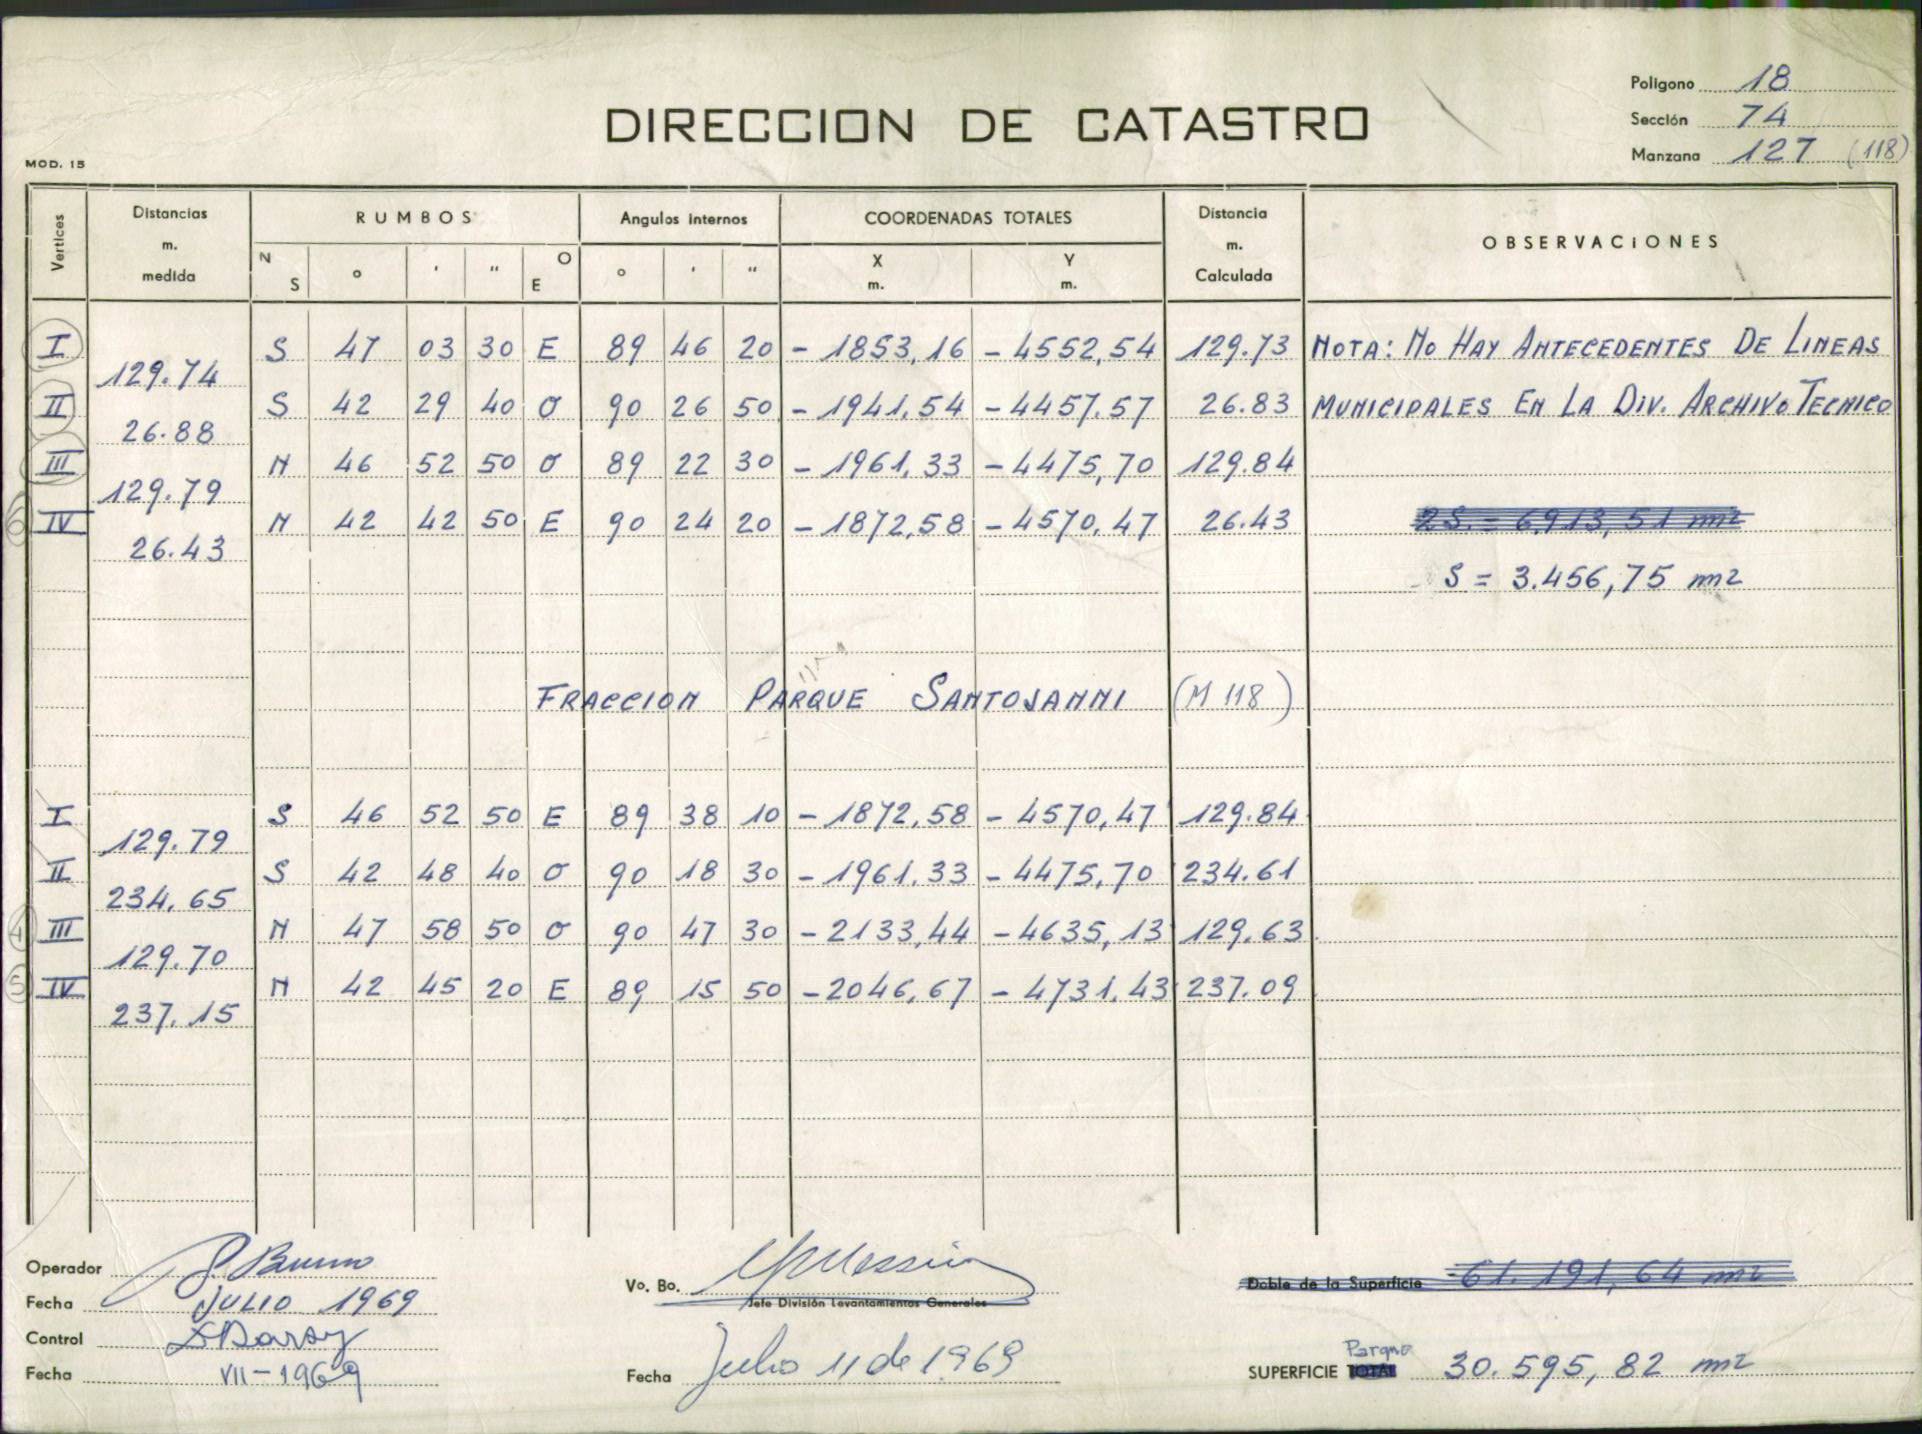 Polígono 18
DIRECCION DE CATASTRO
Sección 74
MOD. 15
Manzana 127 (118)
Vertices
Distancias m. medida
RUMBOS
Angulos internos
COORDENADAS TOTALES
Distancia m. Calculada
OBSERVACIONES
N S ° ' " O E ° ' " X m. Y m.
I S 47 03 30 E 89 46 20 - 1853,16 - 4552,54 129.73 NOTA: NO HAY ANTECEDENTES DE LINEAS
129.74
II S 42 29 40 O 90 26 50 - 1941,54 - 4457.57 26.83 MUNICIPALES EN LA DIV. ARCHIVO TECNICO
26.88
III N 46 52 50 O 89 22 30 - 1961,33 - 4475,70 129.84
129.79
6 IV N 42 42 50 E 90 24 20 - 1872,58 - 4570,47 26.43 2S. = 6913,51 m2
26.43
S = 3.456,75 m2
FRACCION PARQUE SANTOJANNI (M 118)
I S 46 52 50 E 89 38 10 - 1872,58 - 4570,47 129.84
129.79
II S 42 48 40 O 90 18 30 - 1961.33 - 4475,70 234.61
234.65
4 III N 47 58 50 O 90 47 30 - 2133,44 - 4635,13 129.63
129.70
5 IV N 42 45 20 E 89 15 50 - 2046,67 - 4731.43 237.09
237.15
Operador
Fecha JULIO 1969
Control
Fecha VII-1969
Vo. Bo.
Jefe División Levantamientos Generales
Fecha Julio 11 de 1969
Doble de la Superficie 61.191,64 m2
Parque
SUPERFICIE TOTAL 30.595,82 m2